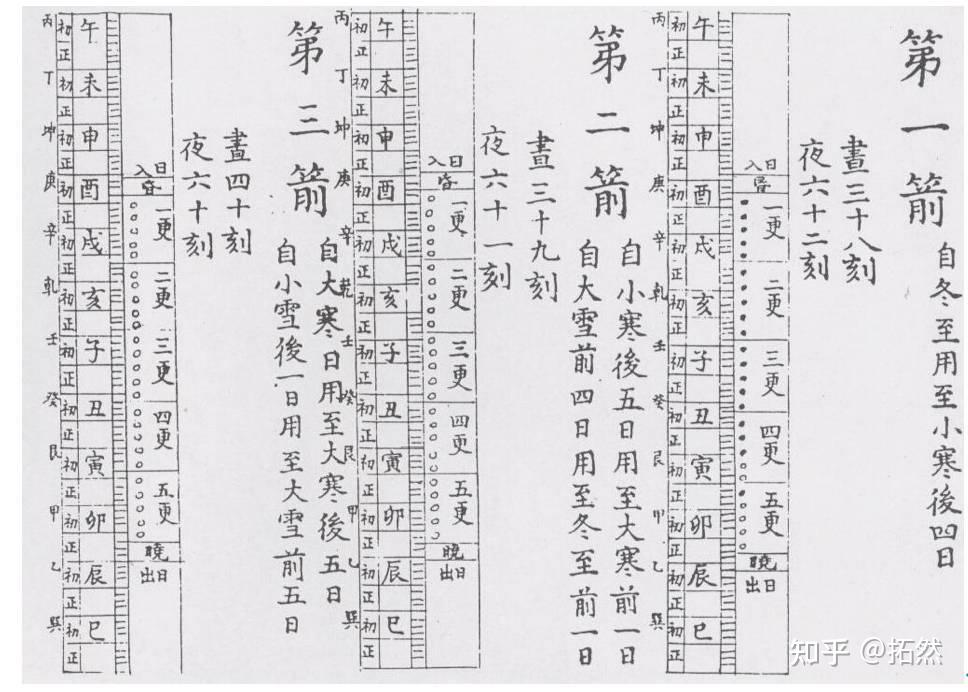 第一箭 自冬至用至小寒後四日
晝三十八刻
夜六十二刻
日入
昏
一更
二更
三更
四更
五更
曉
日出
午未申酉戌亥子丑寅卯辰巳
初正初正初正初正初正初正初正初正初正初正初正初正
丙丁坤庚辛乾壬癸艮甲乙巽
第二箭
自小寒後五日用至大寒前一日
自大雪前四日用至冬至前一日
晝三十九刻
夜六十一刻
日入
昏
一更
二更
三更
四更
五更
曉
日出
午未申酉戌亥子丑寅卯辰巳
初正初正初正初正初正初正初正初正初正初正初正初正
丙丁坤庚辛乾壬癸艮甲乙巽
第三箭
自大寒日用至大寒後五日
自小雪後一日用至大雪前五日
晝四十刻
夜六十刻
日入
昏
一更
二更
三更
四更
五更
曉
日出
午未申酉戌亥子丑寅卯辰巳
初正初正初正初正初正初正初正初正初正初正初正初正
丙丁坤庚辛乾壬癸艮甲乙巽
知乎 @拓然